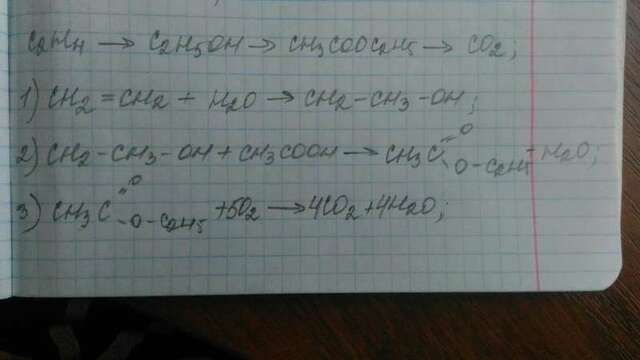 C2H4 → C2H5OH → CH3COOC2H5 → CO2;
1) CH2 = CH2 + H2O → CH2-CH3-OH;
2) CH2-CH3-OH + CH3COOH → CH3C =O O-C2H5 + H2O;
3) CH3C =O -O-C2H5 + 5O2 → 4CO2 + 4H2O;